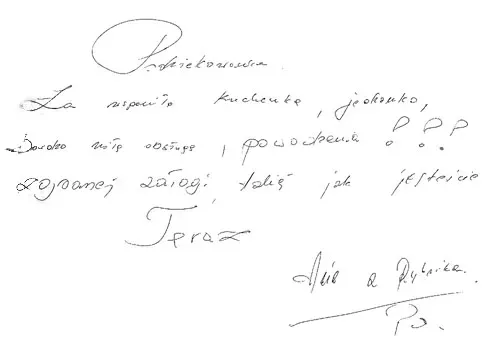 Podziękowanie
Za wspaniłą kuchenkę, jedzonko,
Bardzo miłą obsługę, powodzenia !!!
zgranej załogi, takiej jak jesteście
Teraz
Ania z Rybnika.